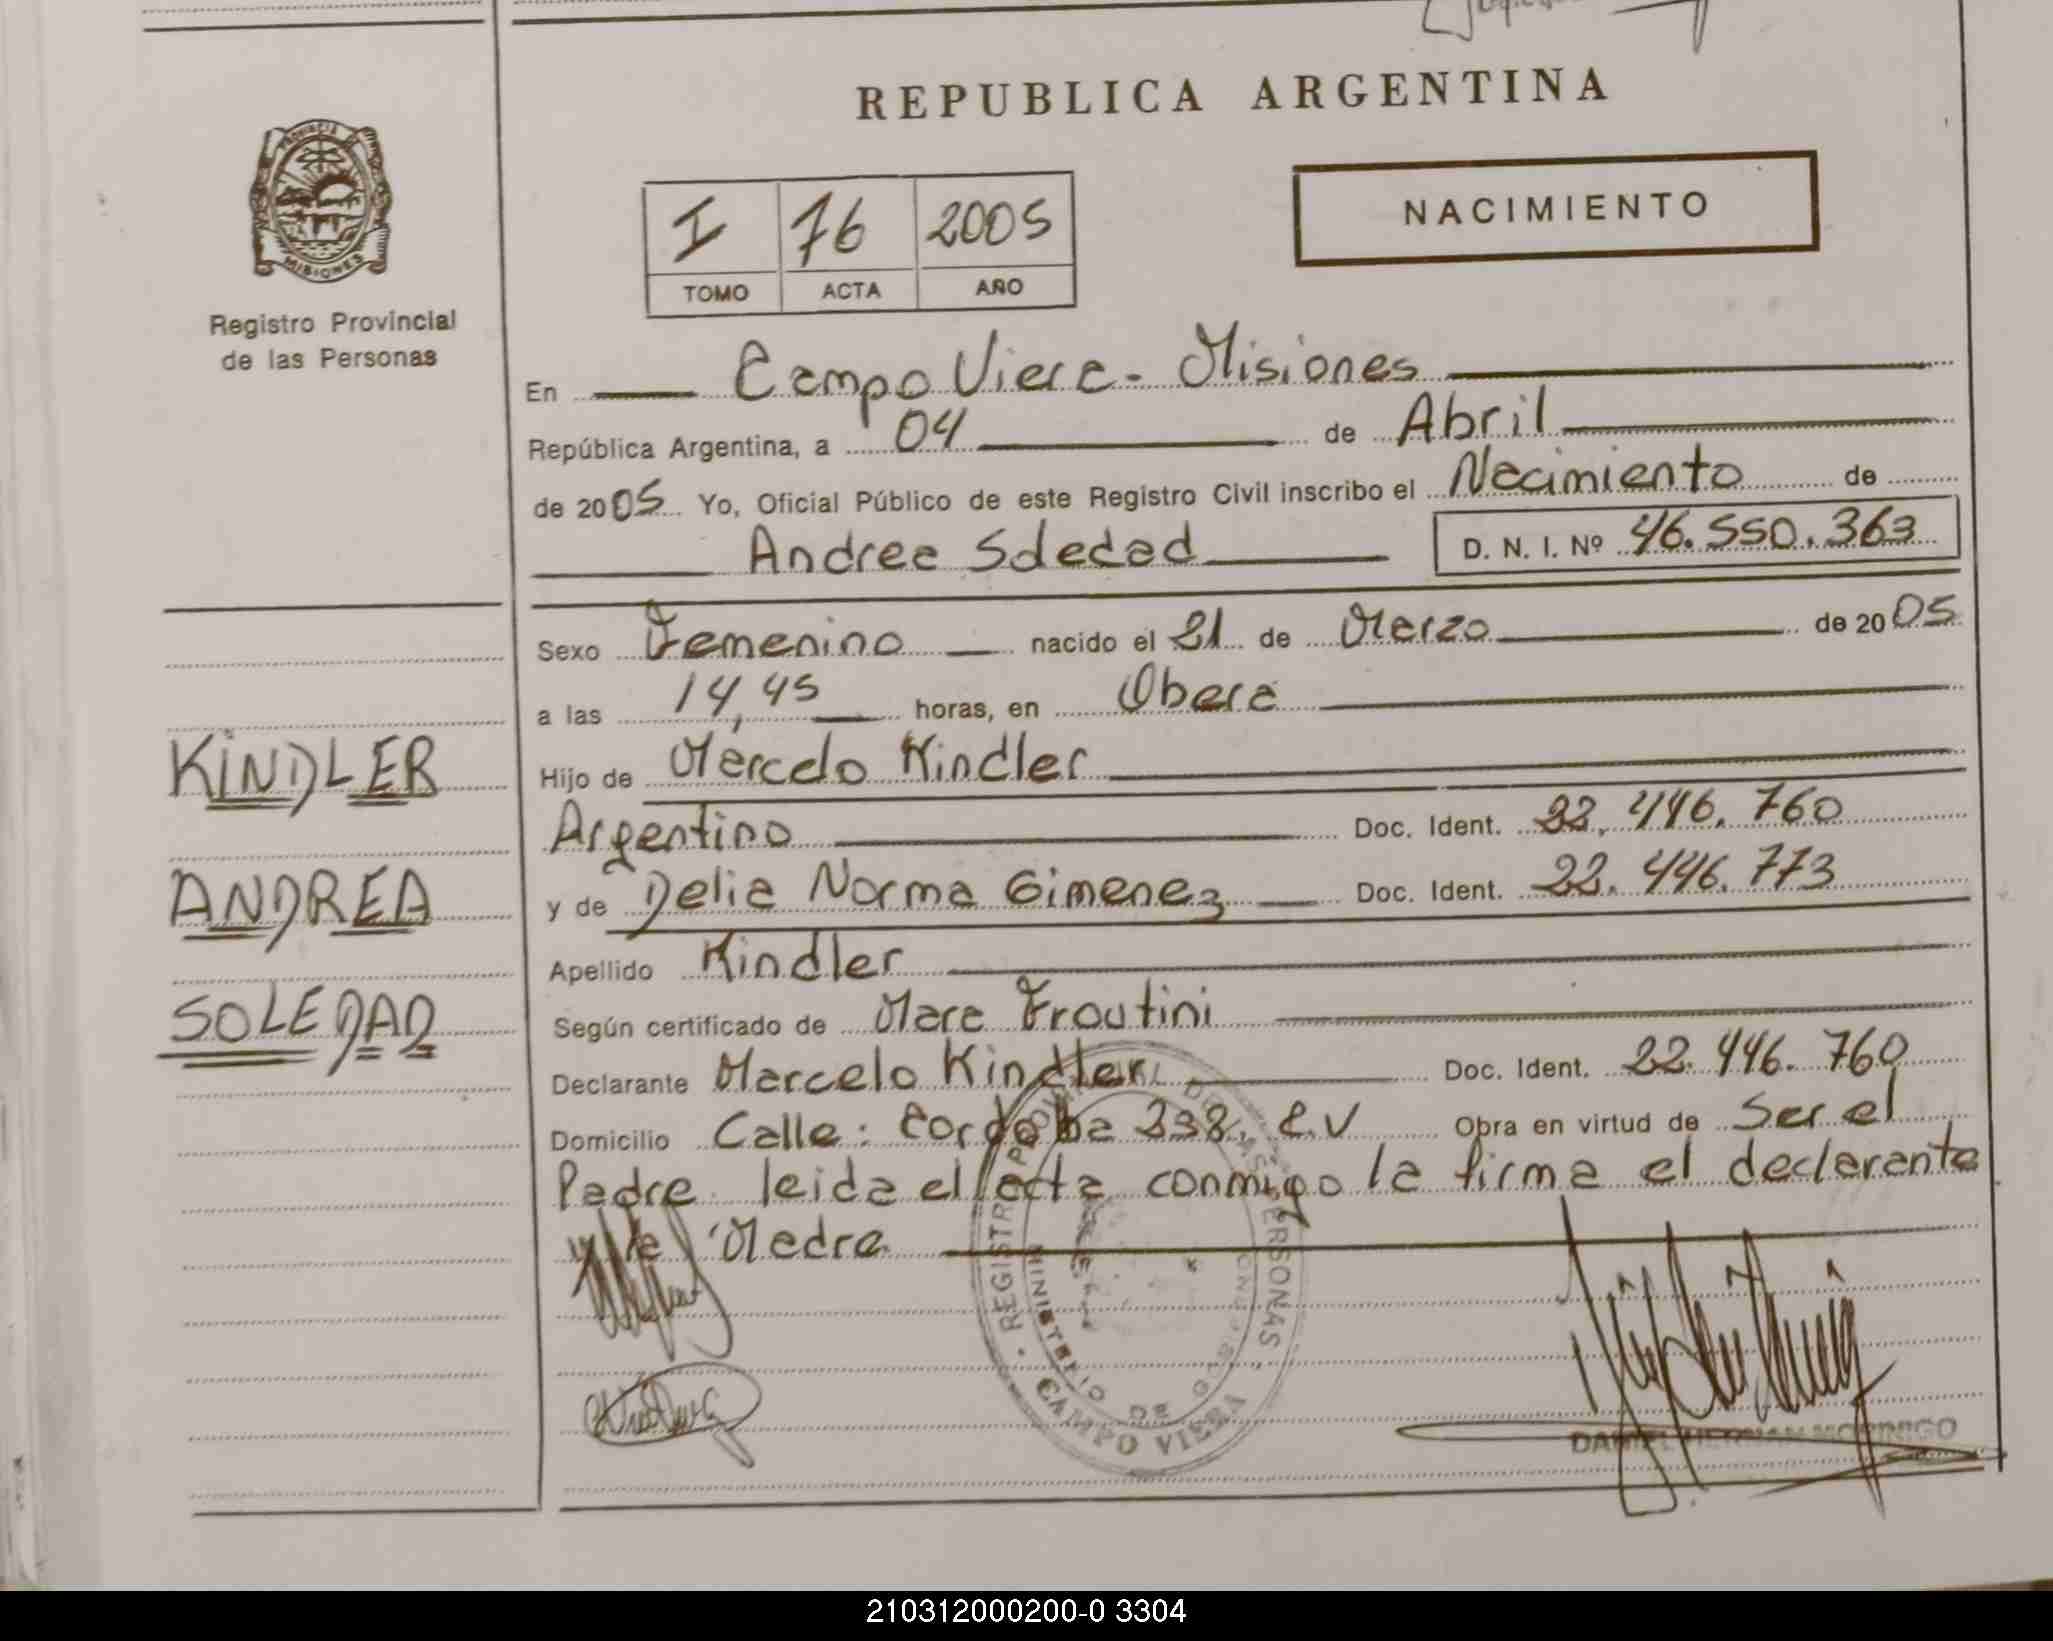 REPUBLICA ARGENTINA
PROVINCIA
MISIONES
Registro Provincial
de las Personas
I 76 2005
TOMO ACTA AÑO
NACIMIENTO
En Campo Viera - Misiones
República Argentina, a 04 de Abril
de 2005 Yo, Oficial Público de este Registro Civil inscribo el Nacimiento de
Andrea Soledad D. N. I. Nº 46.550.363
Sexo Femenino nacido el 21 de Marzo de 2005
a las 14,45 horas, en Obera
Hijo de Marcelo Kindler
Argentino Doc. Ident. 22.446.760
y de Delia Norma Gimenez Doc. Ident. 22.446.773
Apellido Kindler
Según certificado de Mara Froutini
Declarante Marcelo Kindler Doc. Ident. 22.446.760
Domicilio Calle: Cordoba 338. C.V Obra en virtud de Ser el
Padre leida el acta conmigo la firma el declarante
y la Madre
KINDLER
ANDREA
SOLEDAD
REGISTRO PROVINCIAL DE LAS PERSONAS
MINISTERIO DE GOB
CAMPO VIERA
DANIEL HERNAN MORINEGO
210312000200-0 3304